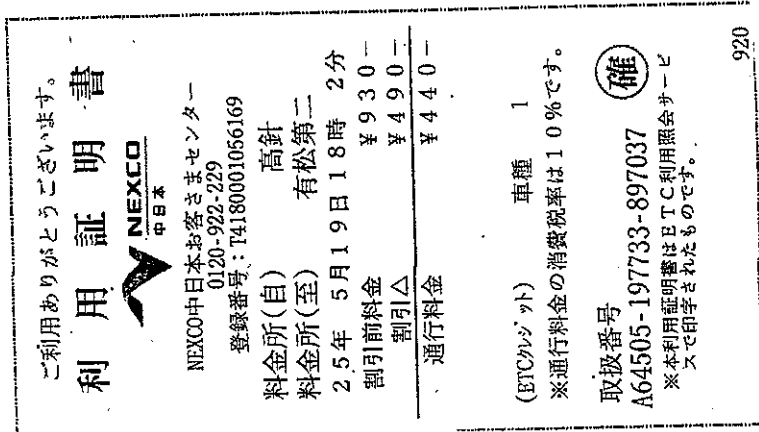 ご利用ありがとうございます。
利用証明書
NEXCO
中日本
NEXCO中日本お客さまセンター
0120-922-229
登録番号：T4180001056169
料金所(自) 高針
料金所(至) 有松第二
25年 5月19日18時 2分
割引前料金 ¥930－
割引△ ¥490－
通行料金 ¥440－
(ETCクレジット) 車種 1
※通行料金の消費税率は10％です。
取扱番号
A64505-197733-897037
確
※本利用証明書はETC利用照会サービ
スで印字されたものです。
920